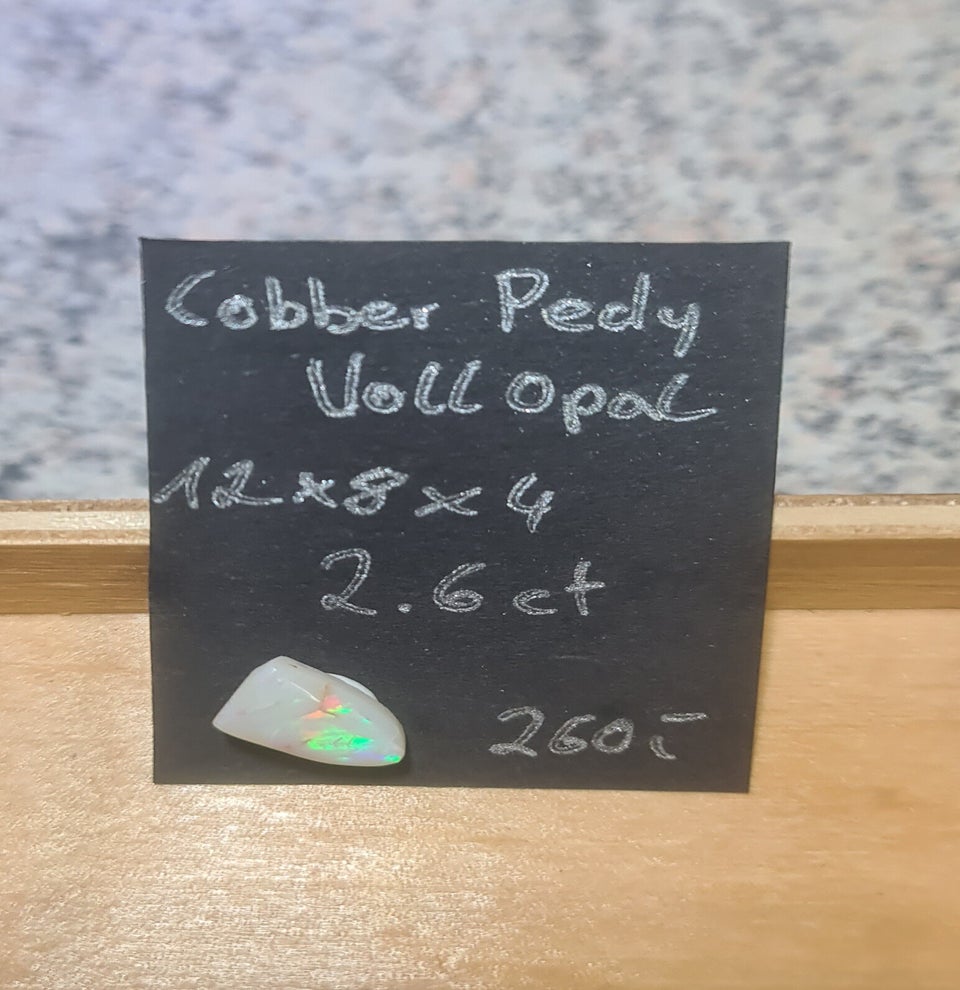 Cobber Pedy
Voll Opal
12 x 8 x 4
2.6 ct
260,-